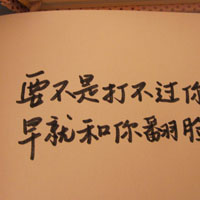 要不是打不过你
早就和你翻脸